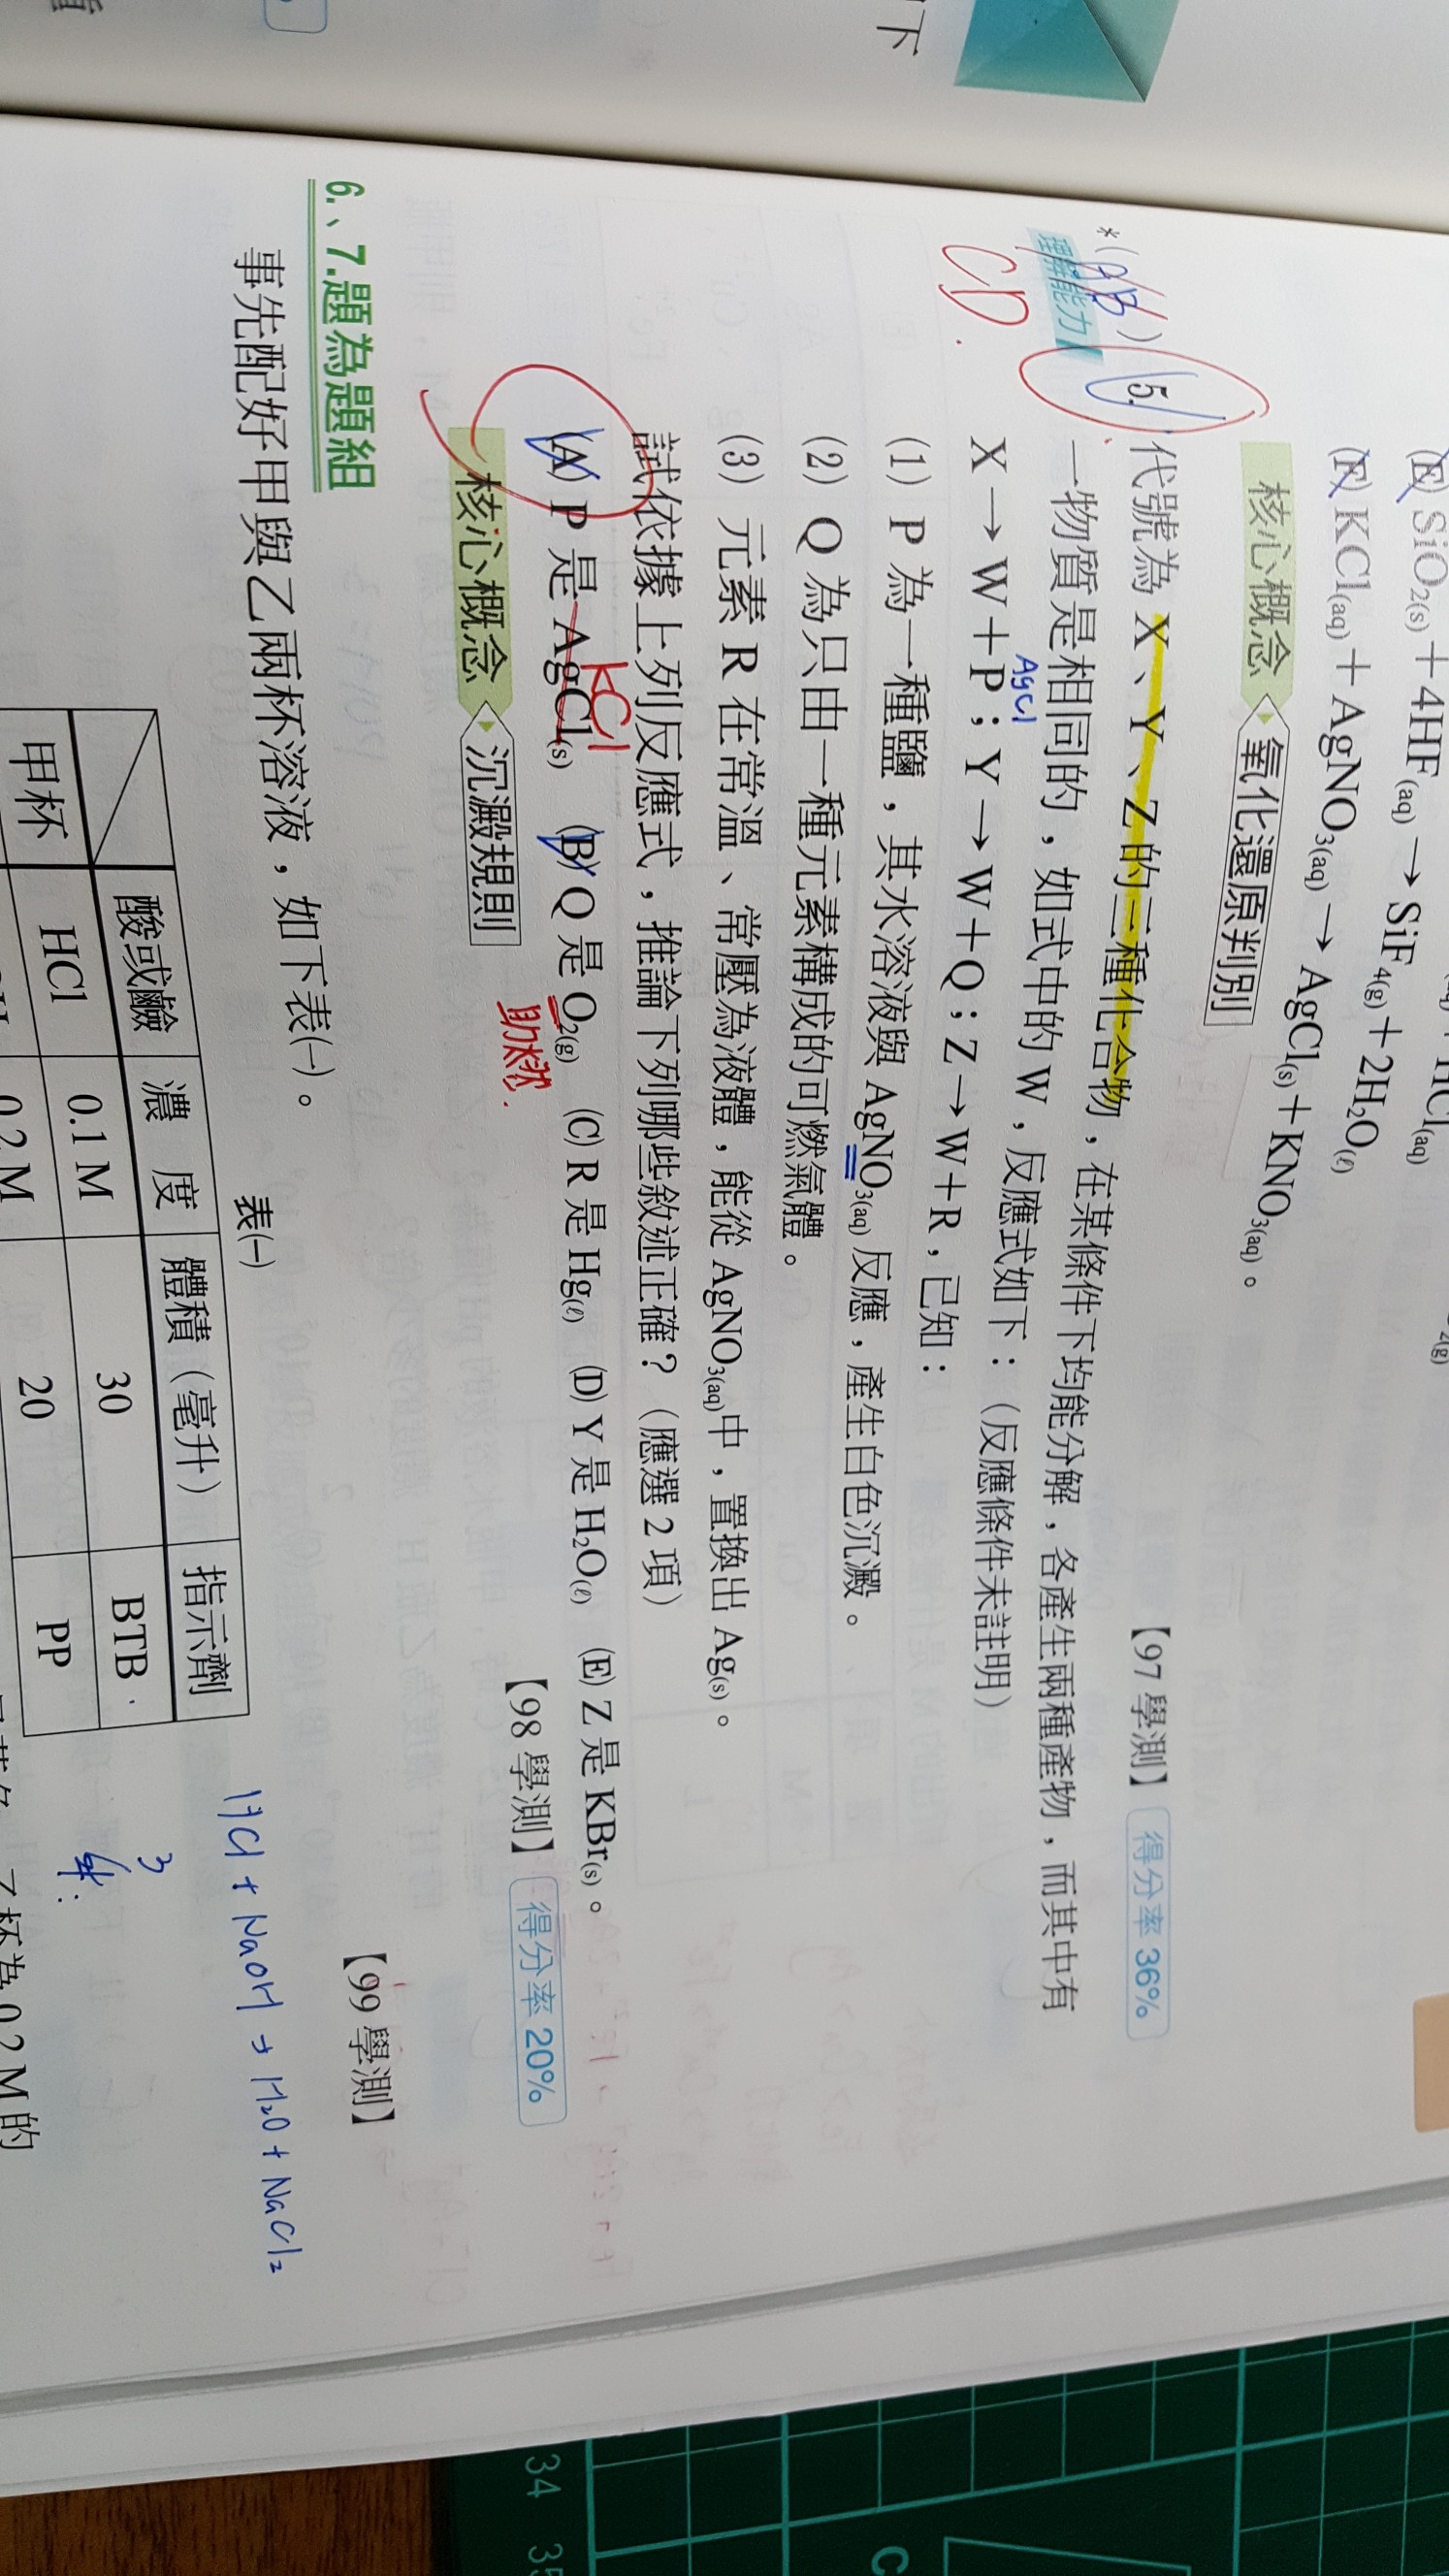 下
(E) SiO2(s)+4HF(aq)→SiF4(g)+2H2O(ℓ)
(F) KCl(aq)+AgNO3(aq)→AgCl(s)+KNO3(aq)。
核心概念 氧化還原判別
【97 學測】 得分率 36%
*(AB) 5. 代號為 X、Y、Z 的三種化合物，在某條件下均能分解，各產生兩種產物，而其中有
理解能力 一物質是相同的，如式中的 W，反應式如下：（反應條件未註明）
CD.
AgCl
X→W+P；Y→W+Q；Z→W+R，已知：
(1) P 為一種鹽，其水溶液與 AgNO3(aq) 反應，產生白色沉澱。
(2) Q 為只由一種元素構成的可燃氣體。
(3) 元素 R 在常溫、常壓為液體，能從 AgNO3(aq)中，置換出 Ag(s)。
試依據上列反應式，推論下列哪些敘述正確？（應選 2 項）
KCl
(A) P 是 AgCl(s) (B) Q 是 O2(g) (C) R 是 Hg(ℓ) (D) Y 是 H2O(ℓ) (E) Z 是 KBr(s)。
助燃.
核心概念 沉澱規則
【98 學測】 得分率 20%
6.、7.題為題組
【99 學測】
事先配好甲與乙兩杯溶液，如下表(一)。
HCl + NaOH → H2O + NaCl2
表(一)
酸或鹼 濃 度 體積（毫升） 指示劑
甲杯 HCl 0.1 M 30 BTB
0.2 M 20 PP
乙杯為 0.2 M 的
34 35
C